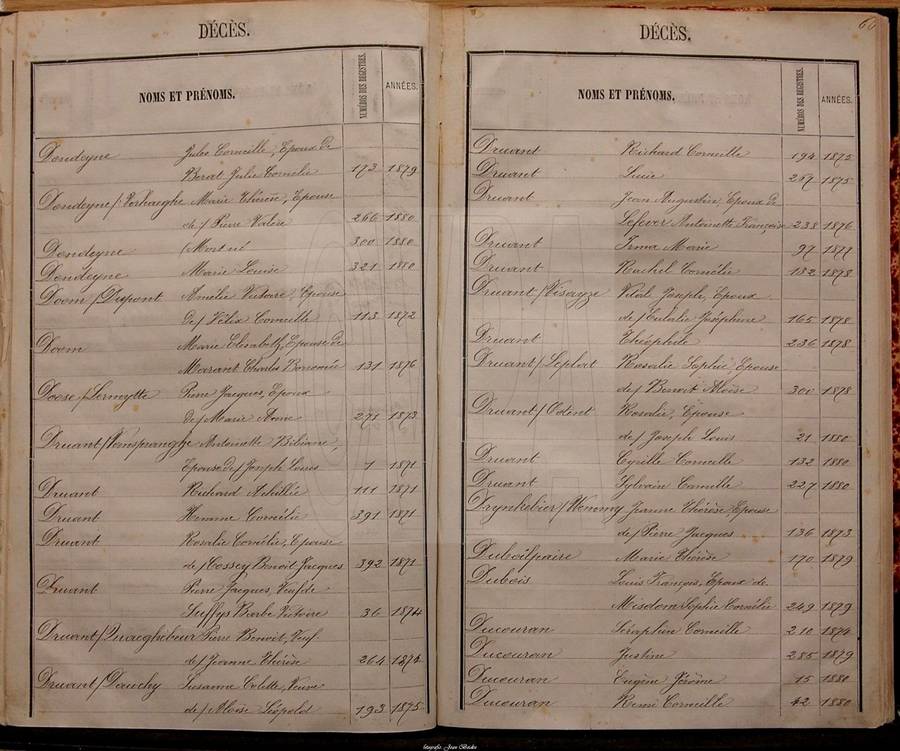 DÉCÈS.
NOMS ET PRÉNOMS. NUMÉROS DES REGISTRES. ANNÉES.
Dendeyne Jules Corneille, Epoux de
Berat Julie Cornélie 173 1879
Dendeyne/Verhaeghe Marie Thérèse, Epouse
de/ Pierre Valère 266 1880
Dendeyne Mort né 300 1880
Dendeyne Marie Louise 321 1880
Doom/Dupont Amélie Victoire, Epouse
de/ Félix Corneille 113 1872
Doom Marie Elisabeth, Epouse de
Marant Charles Boromée 131 1876
Doese/Lermytte Pierre Jacques, Epoux
de/ Marie Anne 271 1873
Druant/ Antoinette Bibiane,
Epouse de/ Joseph Louis 1 1871
Druant Richard Achille 111 1871
Druant Hemme Cornélie 391 1871
Druant Rosalie Cornélie, Epouse
de Hossey Benoit Jacques 392 1871
Druant Pierre Jacques, Veuf de
Barbe Victoire 36 1874
Druant/Quaeghebeur Pierre Benoit, Veuf
de/ Jeanne Thérèse 264 1874
Druant/Dauchy Susanne Colette, Veuve
de/ Aloïse Léopold 193 1875
60
DÉCÈS.
NOMS ET PRÉNOMS. NUMÉROS DES REGISTRES. ANNÉES.
Druant Richard Corneille 194 1875
Druant Lucie 1875
Druant Jean Augustin, Epoux de
Lefever Antoinette Françoise 238 1876
Druant Irma Marie 97 1877
Druant Rachel Cornélie 132 1878
Druant/ Vital Joseph, Epoux
de/ Eulalie Joséphine 165 1878
Druant Théophile 236 1878
Druant/Leplat Rosalie Sophie, Epouse
de/ Benoit Aloïse 300 1878
Druant/Odent Rosalie, Epouse
de/ Joseph Louis 21 1880
Druant Cyrille Corneille 132 1880
Druant Sylvain Camille 227 1880
Drynkebier/Hemmy Jeanne Thérèse Epouse
de/ Pierre Jacques 136 1873
Duboilpaire Marie Thérèse 170 1879
Dubois Louis François, Epoux de
Misdom Sophie Cornélie 249 1879
Ducouran Séraphin Corneille 210 1874
Ducouran Justine 285 1879
Ducouran Eugène Jérôme 15 1880
Ducouran Remi Corneille 42 1880